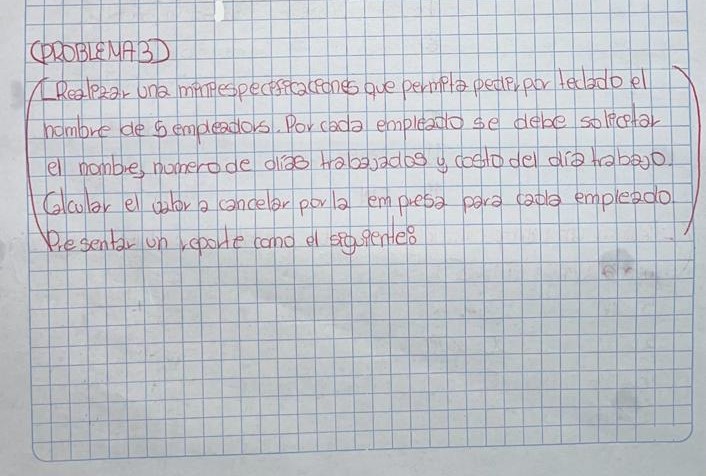 (PROBLEMA 3)
(Realizar una miniespecificaciones que permita pedir por teclado el
nombre de 5 empleados. Por cada empleado se debe solicitar
el nombre, numero de dias trabajados y costo del dia trabajo.
Calcular el valor a cancelar por la empresa para cada empleado.
Presentar un reporte como el siguiente:)